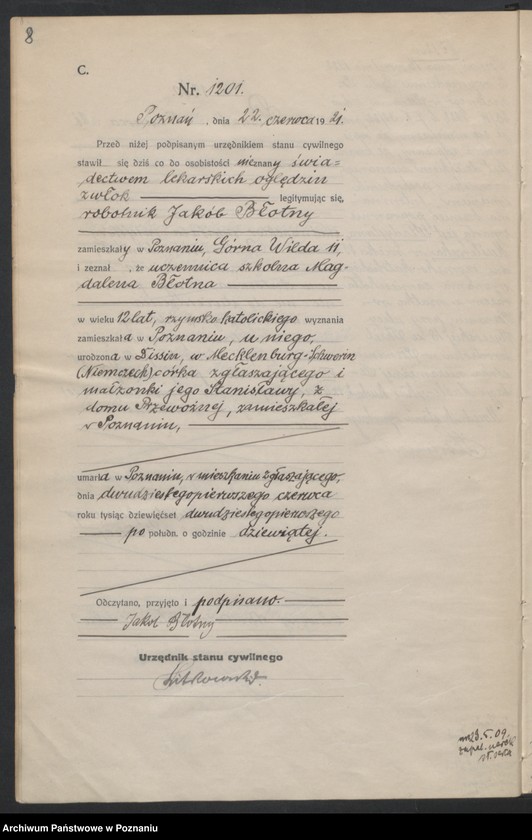 8
C.
Nr. 1201.
Poznań, dnia 22. czerwca 1921.
Przed niżej podpisanym urzędnikiem stanu cywilnego
stawił się dziś co do osobistości nieznany świa=
dectwem lekarskich oględzin
zwłok legitymując się,
robotnik Jakób Błotny
zamieszkały w Poznaniu, Górna Wilda 11,
i zeznał, że uczennica szkolna Mag-
dalena Błotna
w wieku 12 lat, rzymsko katolickiego wyznania
zamieszkała w Poznaniu, u niego,
urodzona w Dissin, w Mecklenburg-Schwerin
(Niemczech) córka zgłaszającego i
małżonki jego Stanisławy, z
domu Przewoźnej, zamieszkałej
w Poznaniu,
umarła w Poznaniu, w mieszkaniu zgłaszającego,
dnia dwudziestegopierwszego czerwca
roku tysiąc dziewięćset dwudziestegopierwszego
po połudn. o godzinie dziewiątej.
Odczytano, przyjęto i podpisano.
Jakob Błotny
Urzędnik stanu cywilnego
23.5.09.
Archiwum Państwowe w Poznaniu